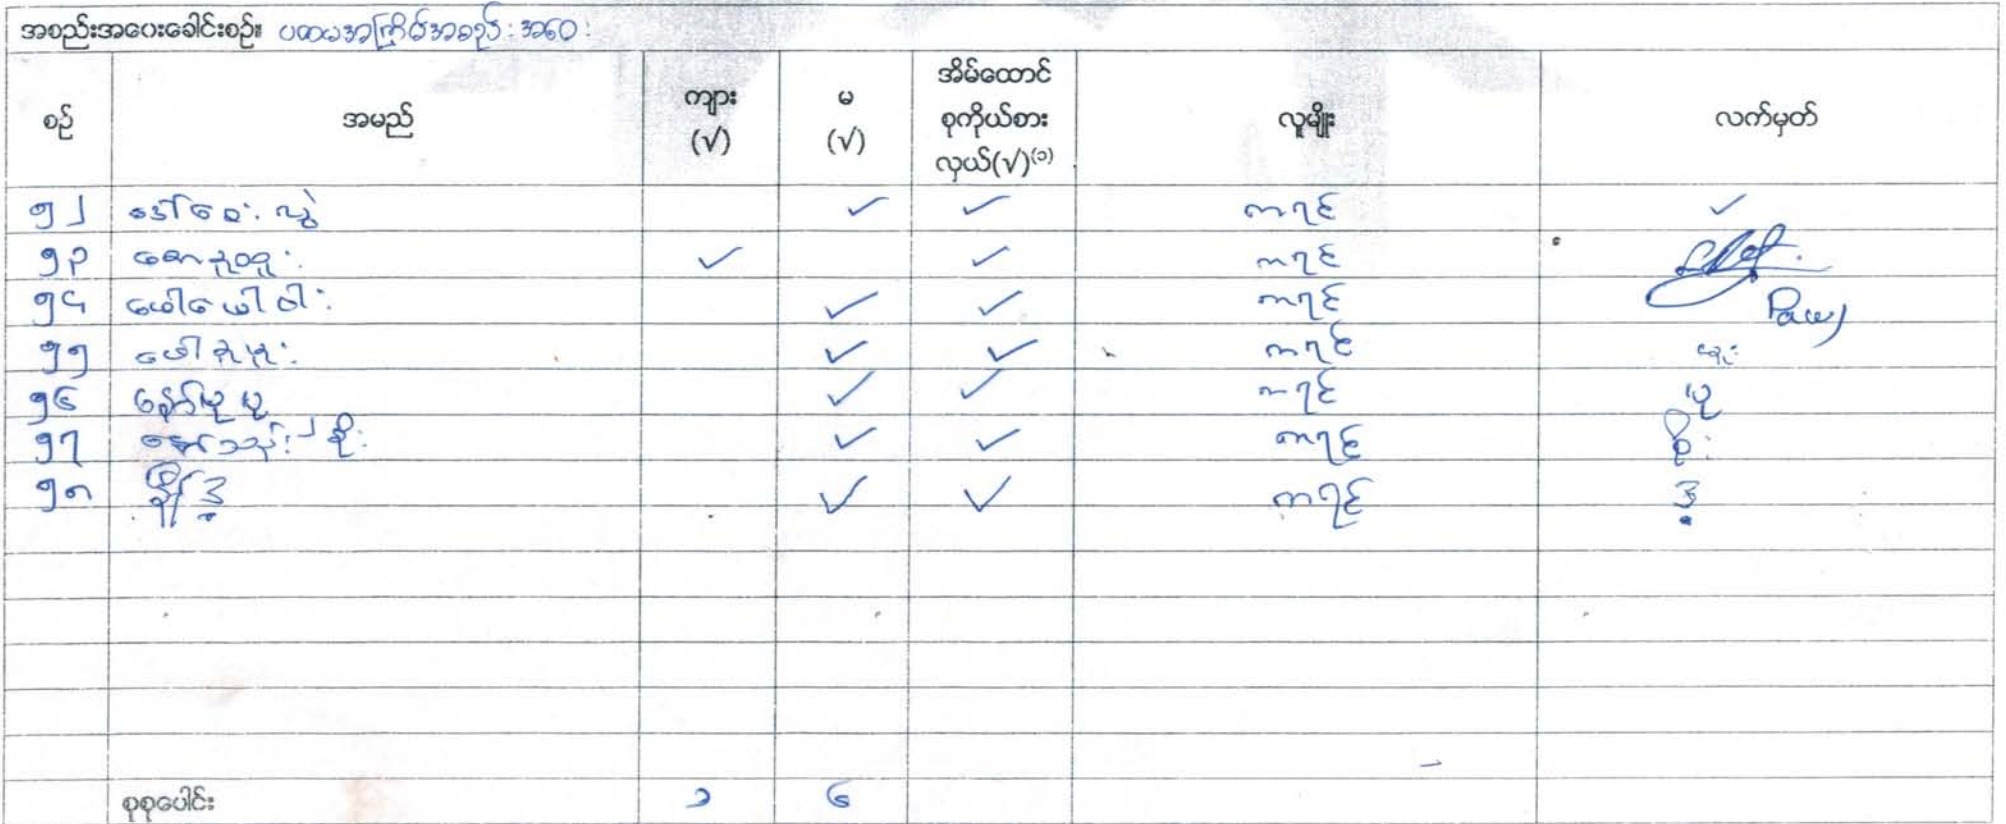 အစည်းအဝေးခေါင်းစဉ်။ ပထမအကြိမ်အစည်းအဝေး
စဉ် အမည် ကျား (√) မ (√) အိမ်ထောင်စုကိုယ်စားလှယ်(√)⁽¹⁾ လူမျိုး လက်မှတ်
၅၂ ဒေါ်ဝေးလွဲ ✓ ✓ ကရင် ✓
၅၃ ✓ ✓ ကရင်
၅၄ ဖေါယေါဝါး ✓ ✓ ကရင် Paw
၅၅ ✓ ✓ ကရင်
၅၆ နော်ယုယု ✓ ✓ ကရင် ယု
၅၇ ✓ ✓ ကရင် စိုး
၅၈ ✓ ✓ ကရင် ဒွ
စုစုပေါင်း ၁ ၆